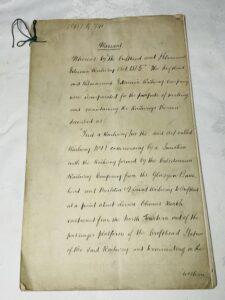 Whereas
Whereas by the Crofthead and Kilmarnock
Extension Railway Act 1865 The Crofthead
and Kilmarnock Extension Railway Company
were incorporated for the purpose of making
and maintaining the Railways therein
described as
First a Railway (in the said Act called
Railway No 1) commencing by a Junction
with the Railway formed by the Caledonian
Railway Company from the Glasgow Barr-
head and Neilston Direct Railway to Crofthead
at a point about eleven chains North
eastward from the North Eastern end of the
passenger platform of the Crofthead Station
of the said Railway and terminating in the
western